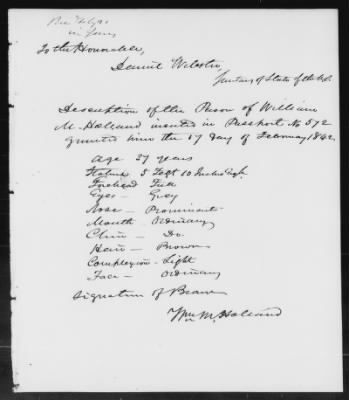 To the Honorable,
Daniel Webster,
Secretary of State of the U.S.
Description of the Person of William
M. Holland inserted in Passport No 572
granted him the 17 day of February 1842.
Age 37 years
Stature 5 Feet 10 Inches high
Forehead Full
Eyes - Grey
Nose - Prominent
Mouth Ordinary
Chin - Do.
Hair - Brown
Complexion - Light
Face - Ordinary
Signature of Bearer
Wm M. Holland